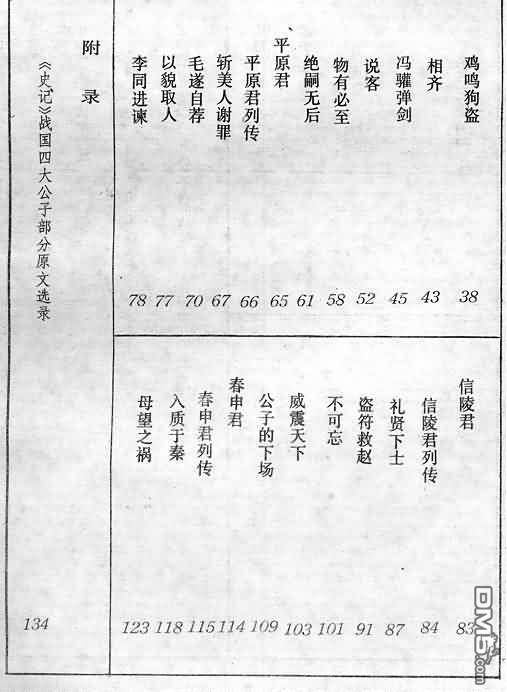 鸡鸣狗盗 38
相齐 43
冯驩弹剑 45
说客 52
物有必至 58
绝嗣无后 61
平原君 65
平原君列传 66
斩美人谢罪 67
毛遂自荐 70
以貌取人 77
李同进谏 78
信陵君 83
信陵君列传 84
礼贤下士 87
盗符救赵 91
不可忘 101
威震天下 103
公子的下场 109
春申君 114
春申君列传 115
入质于秦 118
毋望之祸 123
附录
《史记》战国四大公子部分原文选录 134
DM5.com